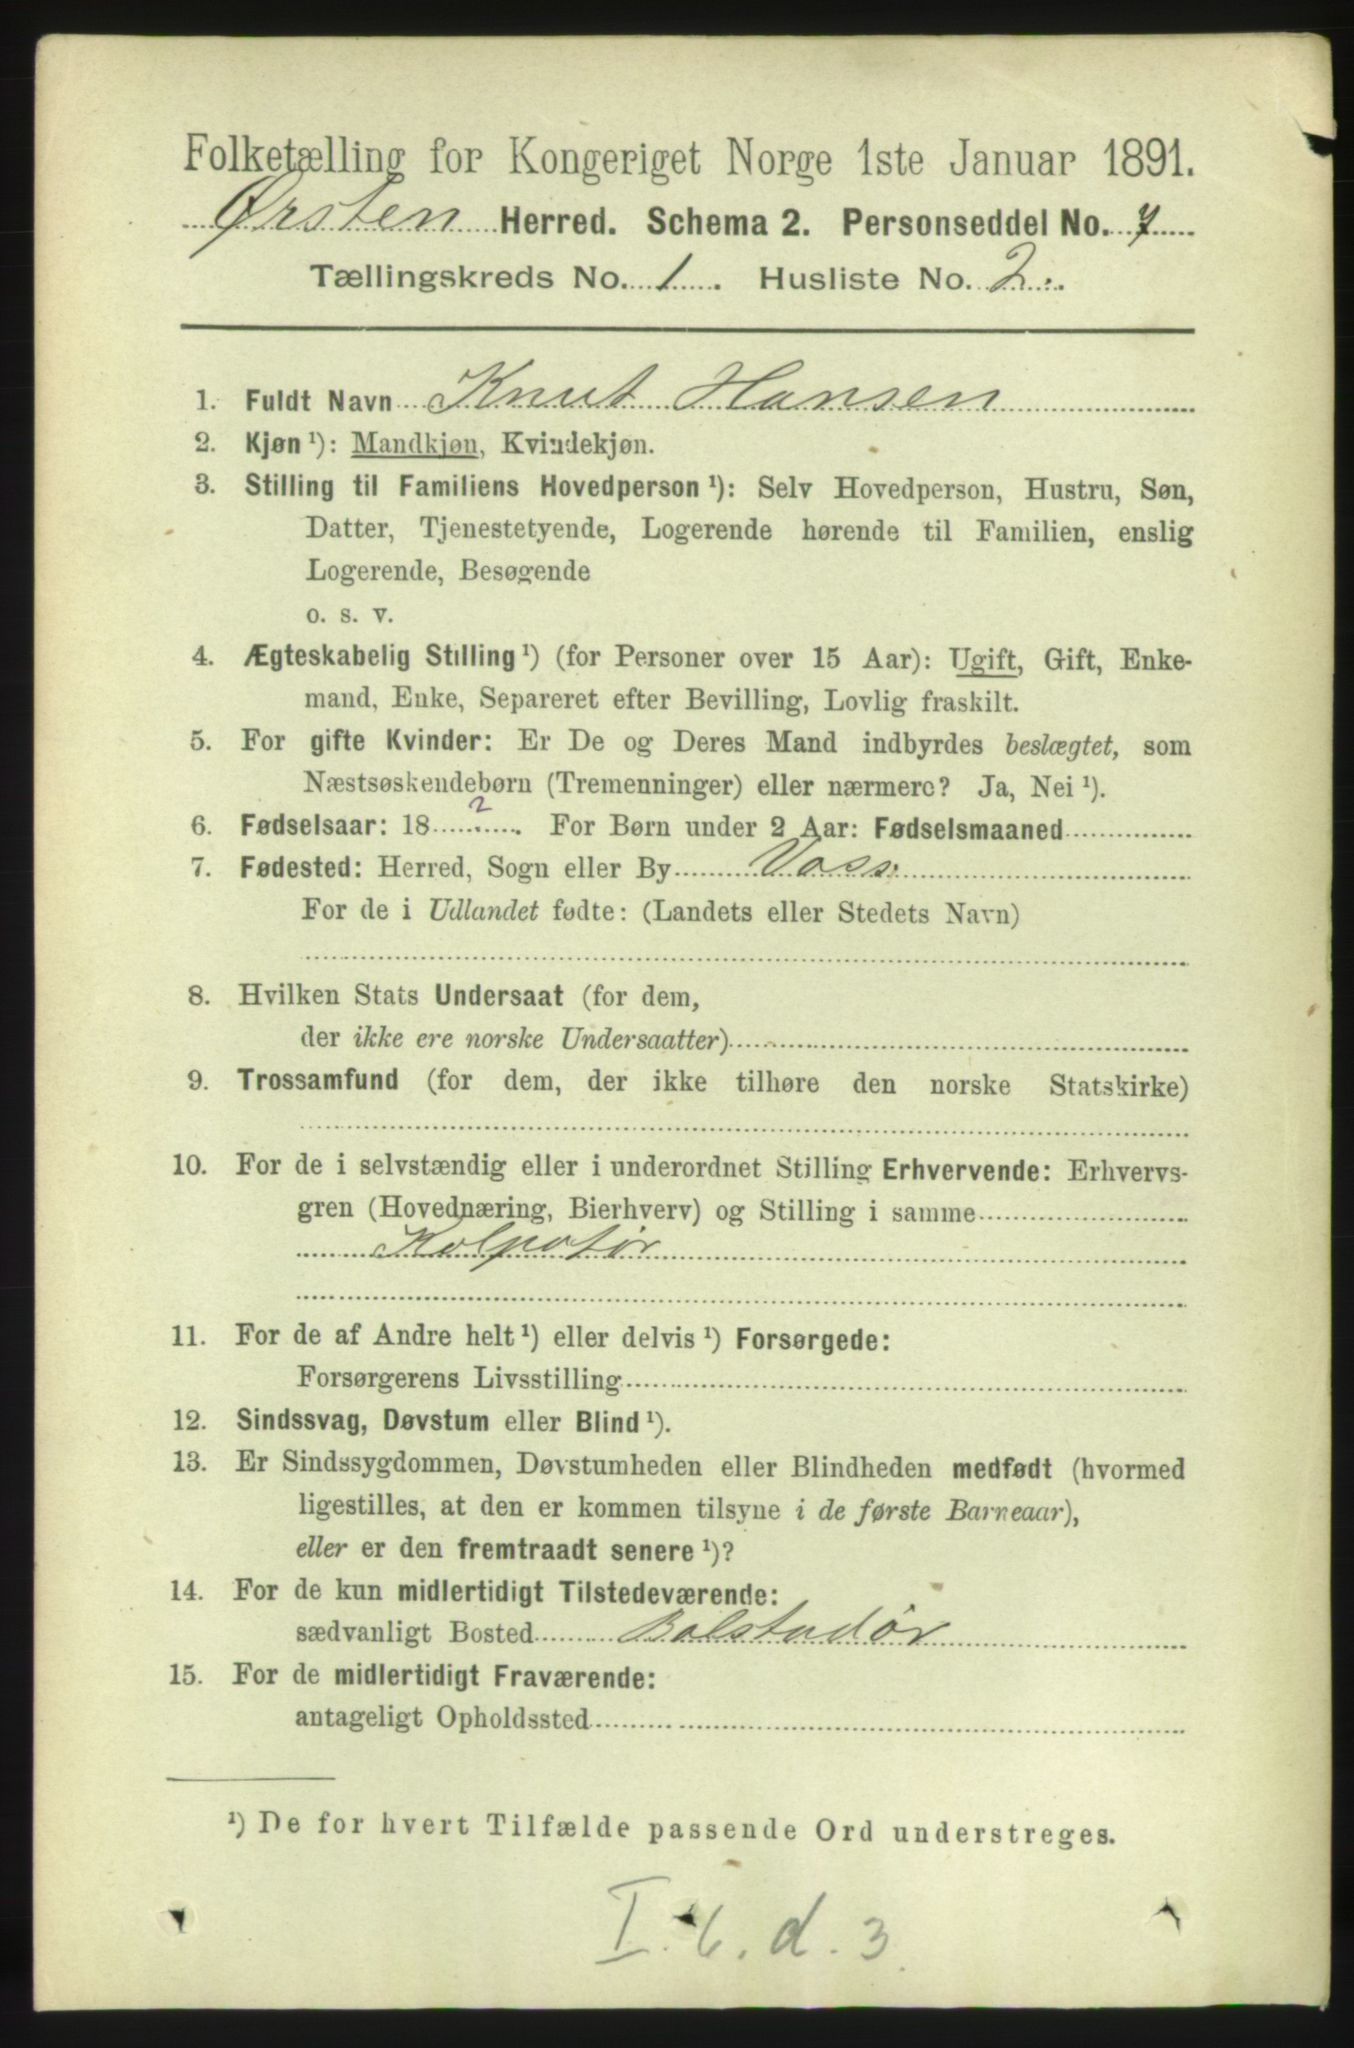 Folketælling for Kongeriget Norge 1ste Januar 1891.
Ørsten Herred. Schema 2. Personseddel No. 7
Tællingskreds No. 1. Husliste No. 2.
1. Fuldt Navn Knut Hansen
2. Kjøn ¹): Mandkjøn, Kvindekjøn.
3. Stilling til Familiens Hovedperson ¹): Selv Hovedperson, Hustru, Søn,
Datter, Tjenestetyende, Logerende hørende til Familien, enslig
Logerende, Besøgende
o. s. v.
4. Ægteskabelig Stilling ¹) (for Personer over 15 Aar): Ugift, Gift, Enke-
mand, Enke, Separeret efter Bevilling, Lovlig fraskilt.
5. For gifte Kvinder: Er De og Deres Mand indbyrdes beslægtet, som
Næstsøskendebørn (Tremenninger) eller nærmere? Ja, Nei ¹).
6. Fødselsaar: 18 ? For Børn under 2 Aar: Fødselsmaaned
7. Fødested: Herred, Sogn eller By Voss.
For de i Udlandet fødte: (Landets eller Stedets Navn)
8. Hvilken Stats Undersaat (for dem,
der ikke ere norske Undersaatter)
9. Trossamfund (for dem, der ikke tilhøre den norske Statskirke)
10. For de i selvstændig eller i underordnet Stilling Erhvervende: Erhvervs-
gren (Hovednæring, Bierhverv) og Stilling i samme
Kolpotør
11. For de af Andre helt ¹) eller delvis ¹) Forsørgede:
Forsørgerens Livsstilling
12. Sindssvag, Døvstum eller Blind ¹).
13. Er Sindssygdommen, Døvstumheden eller Blindheden medfødt (hvormed
ligestilles, at den er kommen tilsyne i de første Barneaar),
eller er den fremtraadt senere ¹)?
14. For de kun midlertidigt Tilstedeværende:
sædvanligt Bosted Bolstadør
15. For de midlertidigt Fraværende:
antageligt Opholdssted
¹) De for hvert Tilfælde passende Ord understreges.
I. 6. d. 3